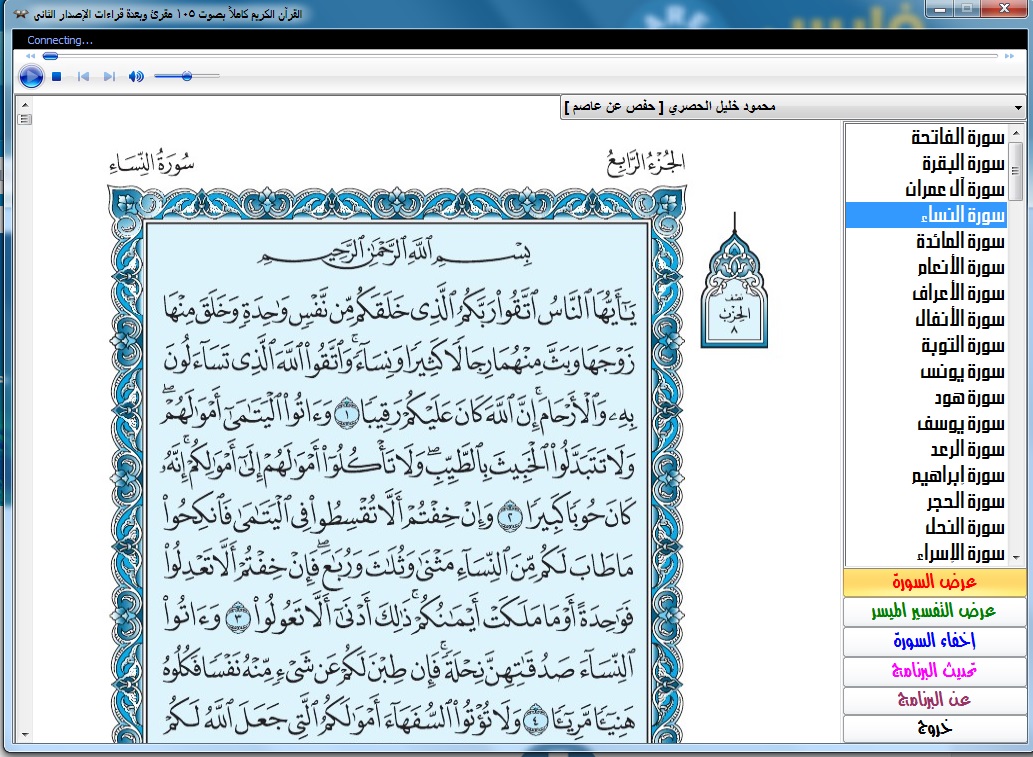 القرآن الكريم كاملاً بصوت ١٠٥ مقرئ وبعدة قراءات الإصدار الثاني
Connecting...
محمود خليل الحصري [ حفص عن عاصم ]
الجُزْءُ الرَّابِعُ
سُورَةُ النِّسَاءِ
بِسْمِ ٱللَّهِ ٱلرَّحْمَٰنِ ٱلرَّحِيمِ
يَٰٓأَيُّهَا ٱلنَّاسُ ٱتَّقُوا۟ رَبَّكُمُ ٱلَّذِى خَلَقَكُم مِّن نَّفْسٍ وَٰحِدَةٍ وَخَلَقَ مِنْهَا
زَوْجَهَا وَبَثَّ مِنْهُمَا رِجَالًا كَثِيرًا وَنِسَآءً ۚ وَٱتَّقُوا۟ ٱللَّهَ ٱلَّذِى تَسَآءَلُونَ
بِهِۦ وَٱلْأَرْحَامَ ۚ إِنَّ ٱللَّهَ كَانَ عَلَيْكُمْ رَقِيبًا ١ وَءَاتُوا۟ ٱلْيَتَٰمَىٰٓ أَمْوَٰلَهُمْ ۖ
وَلَا تَتَبَدَّلُوا۟ ٱلْخَبِيثَ بِٱلطَّيِّبِ ۖ وَلَا تَأْكُلُوٓا۟ أَمْوَٰلَهُمْ إِلَىٰٓ أَمْوَٰلِكُمْ ۚ إِنَّهُۥ
كَانَ حُوبًا كَبِيرًا ٢ وَإِنْ خِفْتُمْ أَلَّا تُقْسِطُوا۟ فِى ٱلْيَتَٰمَىٰ فَٱنكِحُوا۟
مَا طَابَ لَكُم مِّنَ ٱلنِّسَآءِ مَثْنَىٰ وَثُلَٰثَ وَرُبَٰعَ ۖ فَإِنْ خِفْتُمْ أَلَّا تَعْدِلُوا۟
فَوَٰحِدَةً أَوْ مَا مَلَكَتْ أَيْمَٰنُكُمْ ۚ ذَٰلِكَ أَدْنَىٰٓ أَلَّا تَعُولُوا۟ ٣ وَءَاتُوا۟
ٱلنِّسَآءَ صَدُقَٰتِهِنَّ نِحْلَةً ۚ فَإِن طِبْنَ لَكُمْ عَن شَىْءٍ مِّنْهُ نَفْسًا فَكُلُوهُ
هَنِيٓـًٔا مَّرِيٓـًٔا ٤ وَلَا تُؤْتُوا۟ ٱلسُّفَهَآءَ أَمْوَٰلَكُمُ ٱلَّتِى جَعَلَ ٱللَّهُ لَكُمْ
نصف
الحِزْب
٨
سورة الفاتحة
سورة البقرة
سورة آل عمران
سورة النساء
سورة المائدة
سورة الأنعام
سورة الأعراف
سورة الأنفال
سورة التوبة
سورة يونس
سورة هود
سورة يوسف
سورة الرعد
سورة إبراهيم
سورة الحجر
سورة النحل
سورة الإسراء
عرض السورة
عرض التفسير الميسر
إخفاء السورة
تحديث البرنامج
عن البرنامج
خروج